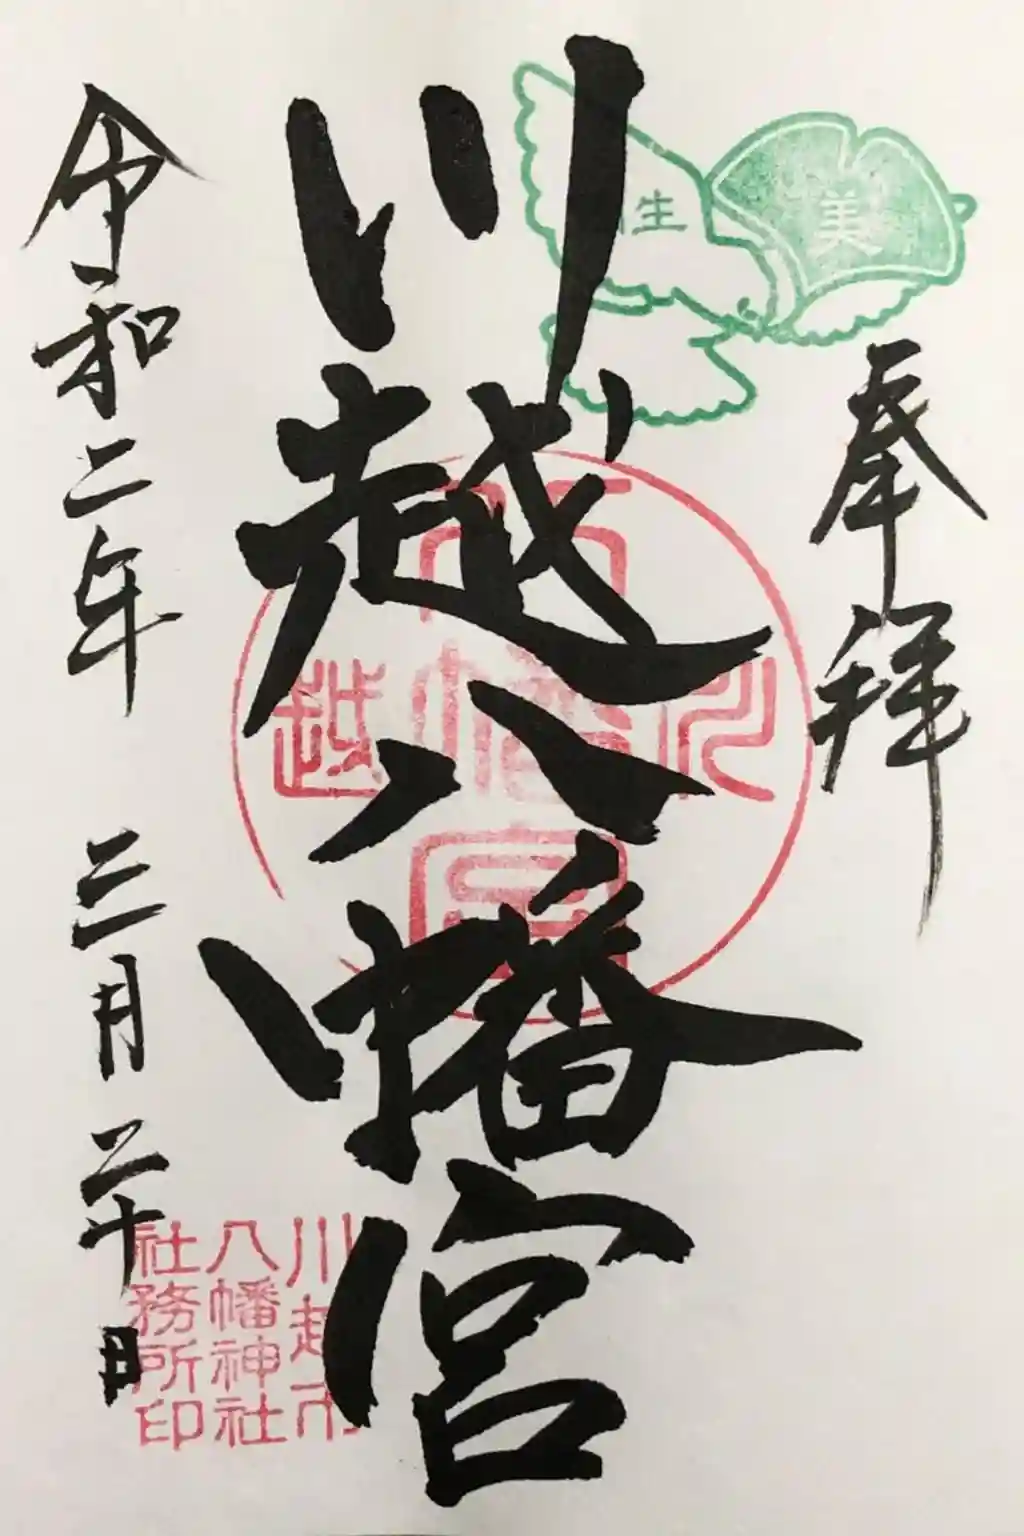 奉拝
美
生
川越八幡宮
八幡宮
川越
川越市
八幡神社
社務所印
令和二年 三月 二十日